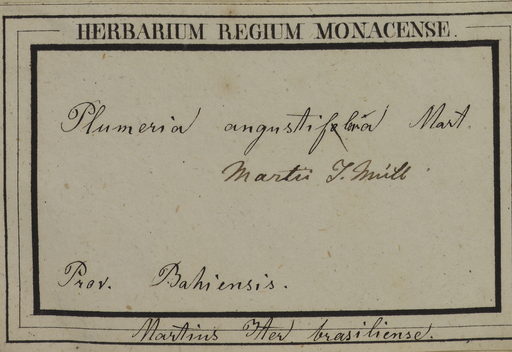 HERBARIUM REGIUM MONACENSE.
Plumeria angustiflora Mart.
Martii J. Müll.
Prov. Bahiensis.
Martius Iter brasiliense.